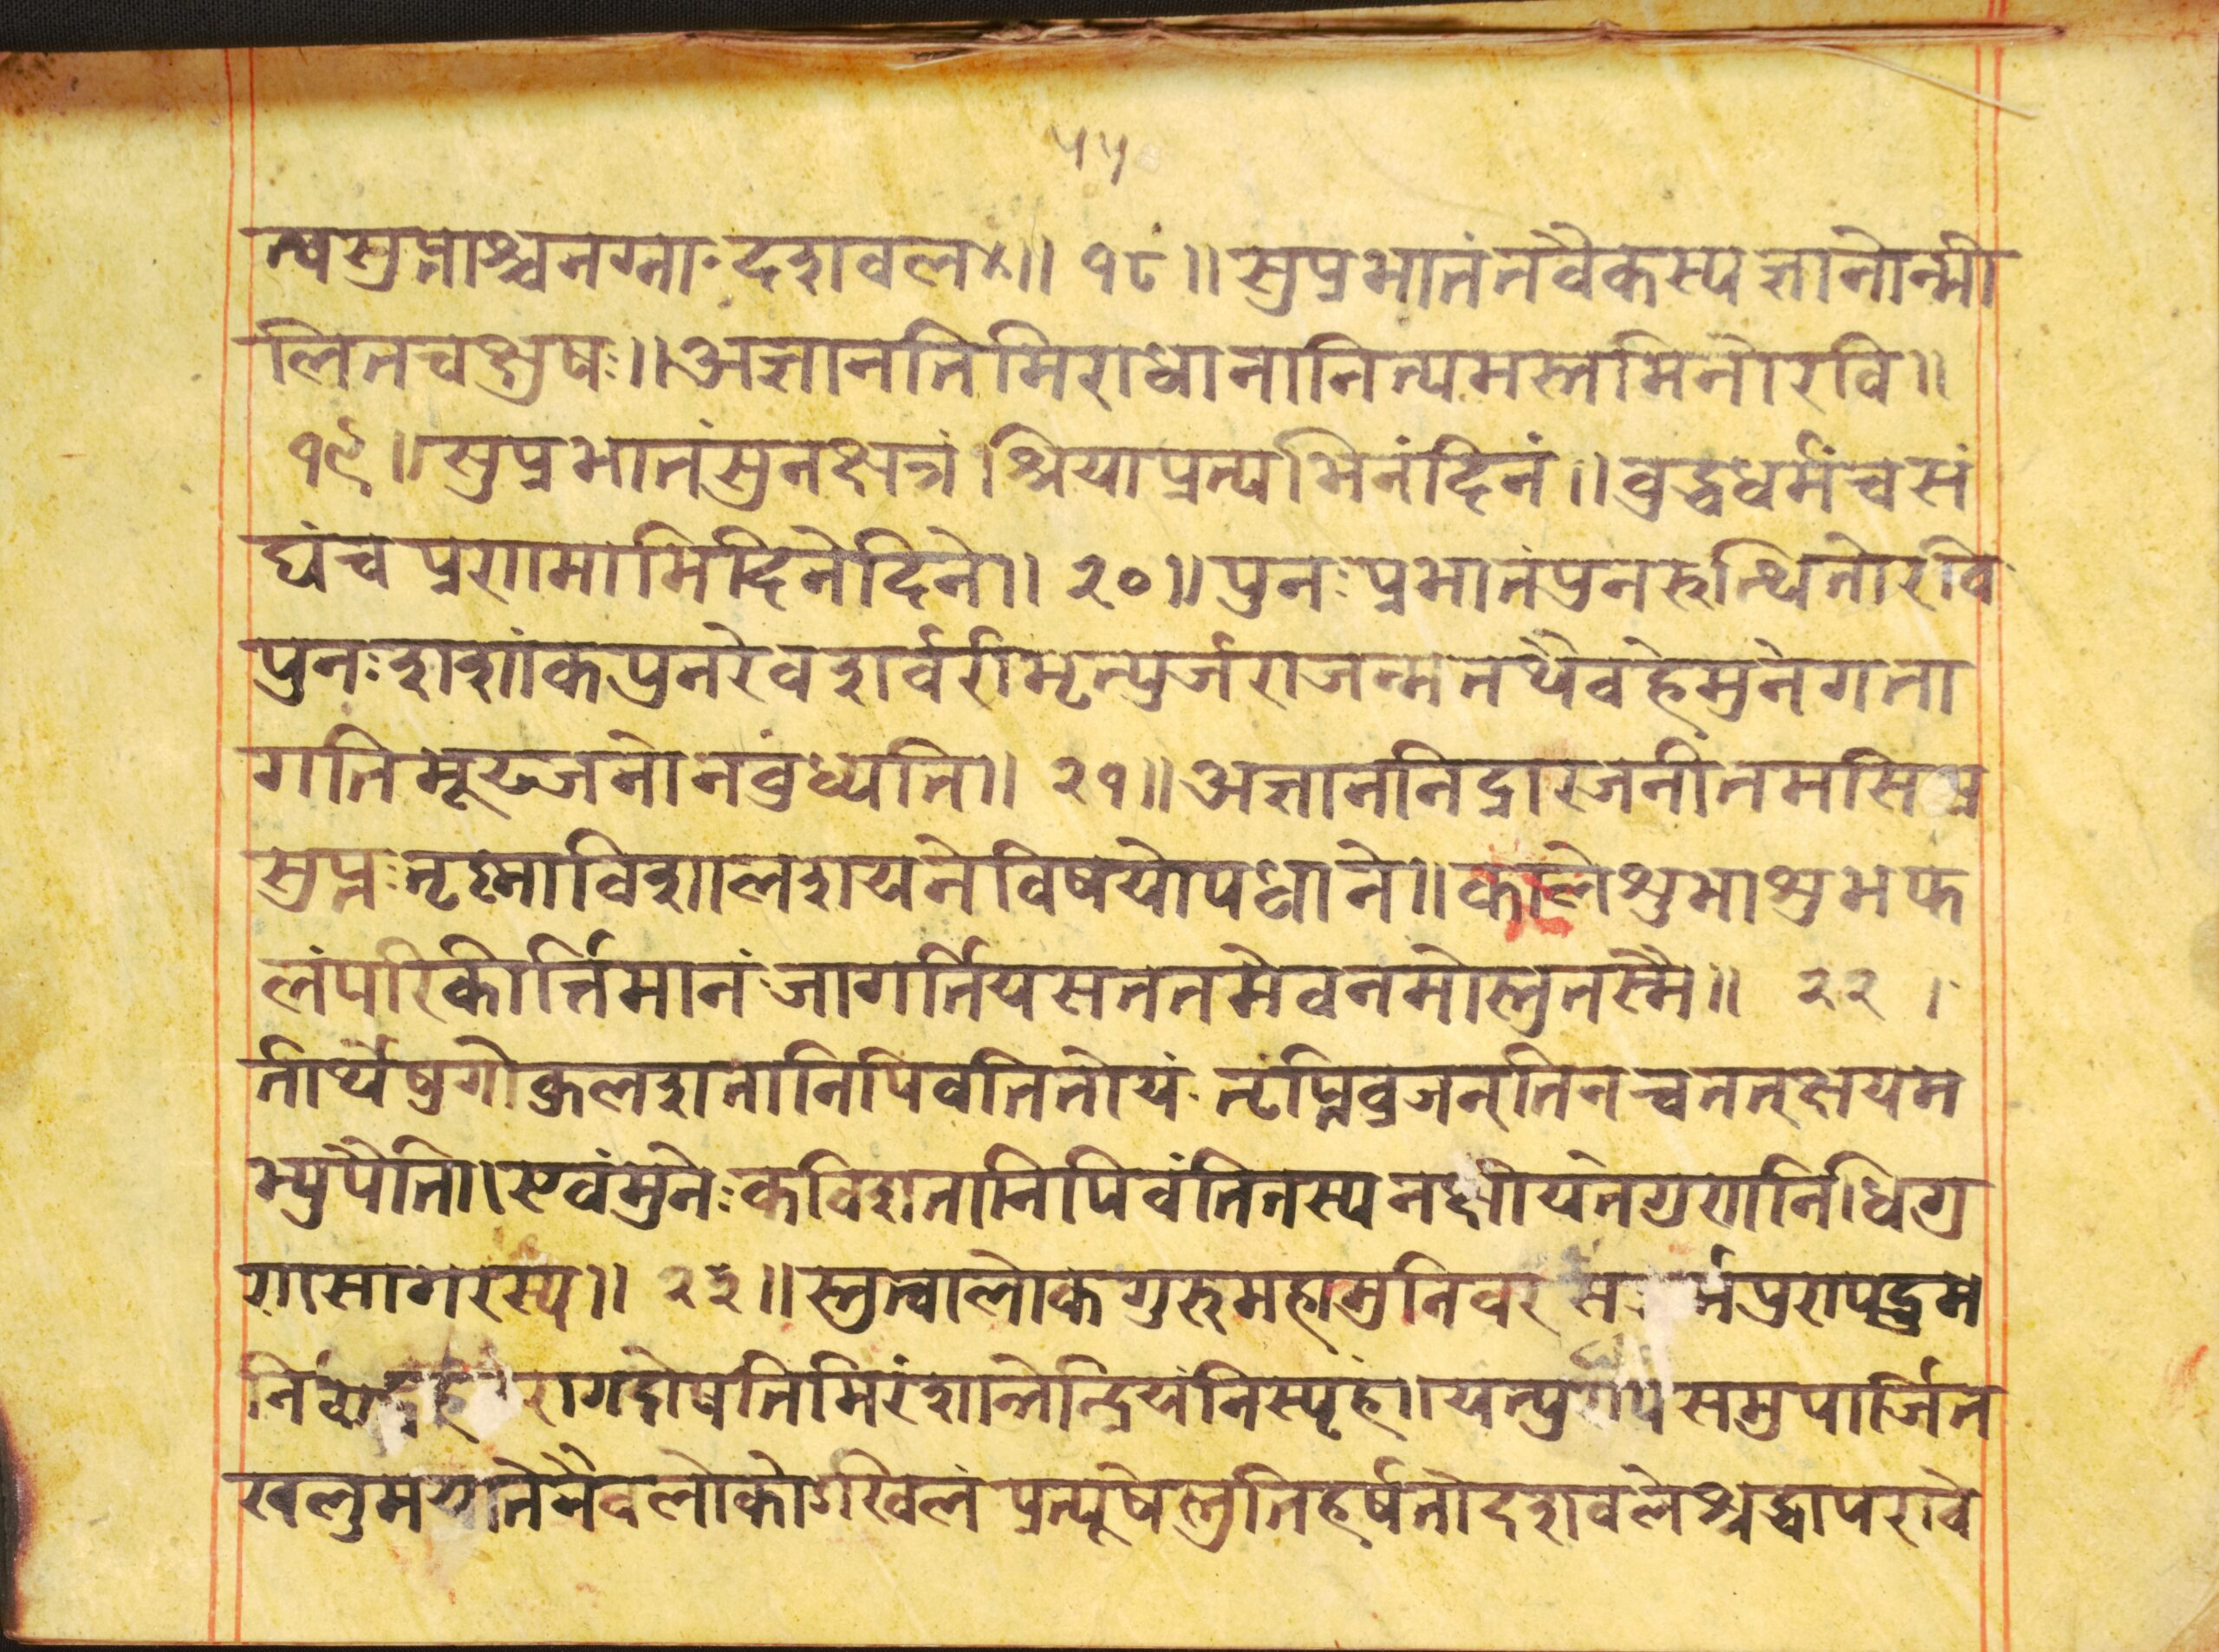 ५५
त्यसुप्ताश्चनग्नाः दशवल॥ १८॥ सुप्रभातंतवैकस्य ज्ञानोन्मी
लितचक्षुषः॥ अज्ञानतिमिराधानानित्यमस्तमितोरवि॥
१९॥ सुप्रभातंसुनक्षत्रं श्रियाप्रत्यभिनंदितं॥ वुद्धधर्मंचसं
घंच प्रणमामिदिनेदिने॥ २०॥ पुनः प्रभातंपुनरुत्थितोरवि
पुनःशशांकपुनरेवशर्वरीमृत्युर्जराजन्मतथैवहेमुनेगता
गतिमूढजनोनवुध्यति॥ २१॥ अज्ञाननिद्रारजनीतमसिप्र
सुप्तः तृष्माविशालशयनेविषयोपधाने॥ कालेशुभाशुभफ
लंपरिकीर्त्तिमानं जागर्तियसततमेवनमोस्तुतस्मै॥ २२।
तीर्थेषुगोकुलशतानिपिवतितोयं तृप्तिव्रजन्तिनचतत्क्षयम
भ्युपैति। एवंमुनेः कविशतानिपिवंतितस्यनक्षीयतेगुणनिधिगु
णसागरस्य॥ २३॥ स्तुत्वालोकगुरुमहामुनिवर प्रुण्यद्रुम
रागद्वेषतिमिरंशान्तेन्द्रियंनिस्पृहं॥ यत्पुण्यसमुपार्जित
खलुमयातेनैवलोकोऽखिलं प्रत्यूषेस्तुतिहर्षतोदशवलेश्रद्धापरावे